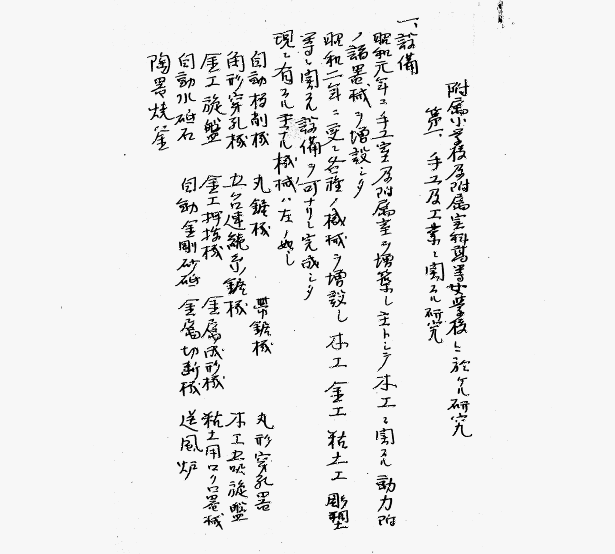 附属小学校及附属実科高等女学校ニ於ケル研究
第一、手工及工業ニ関スル研究
一、設備
昭和元年ニ手工室及附属室ヲ増築シ主トシテ木工ニ関スル動力附
ノ諸器械ヲ増設シタ
昭和二年ニ更ニ各種ノ機械ヲ増設シ木工 金工 粘土工 彫塑
等ニ関スル設備ヲ可ナリニ完成シタ
現ニ有スル主ナル機械ハ左ノ如シ
自動 削機 丸鋸機 帯鋸機 丸形穿孔器
角形穿孔機 五台連続糸鋸機 木工 旋盤
金工旋盤 金工 機 金属成形機 粘土用ロクロ器械
自動水砥石 自動金剛砂砥 金属切断機 送風炉
陶器焼釜